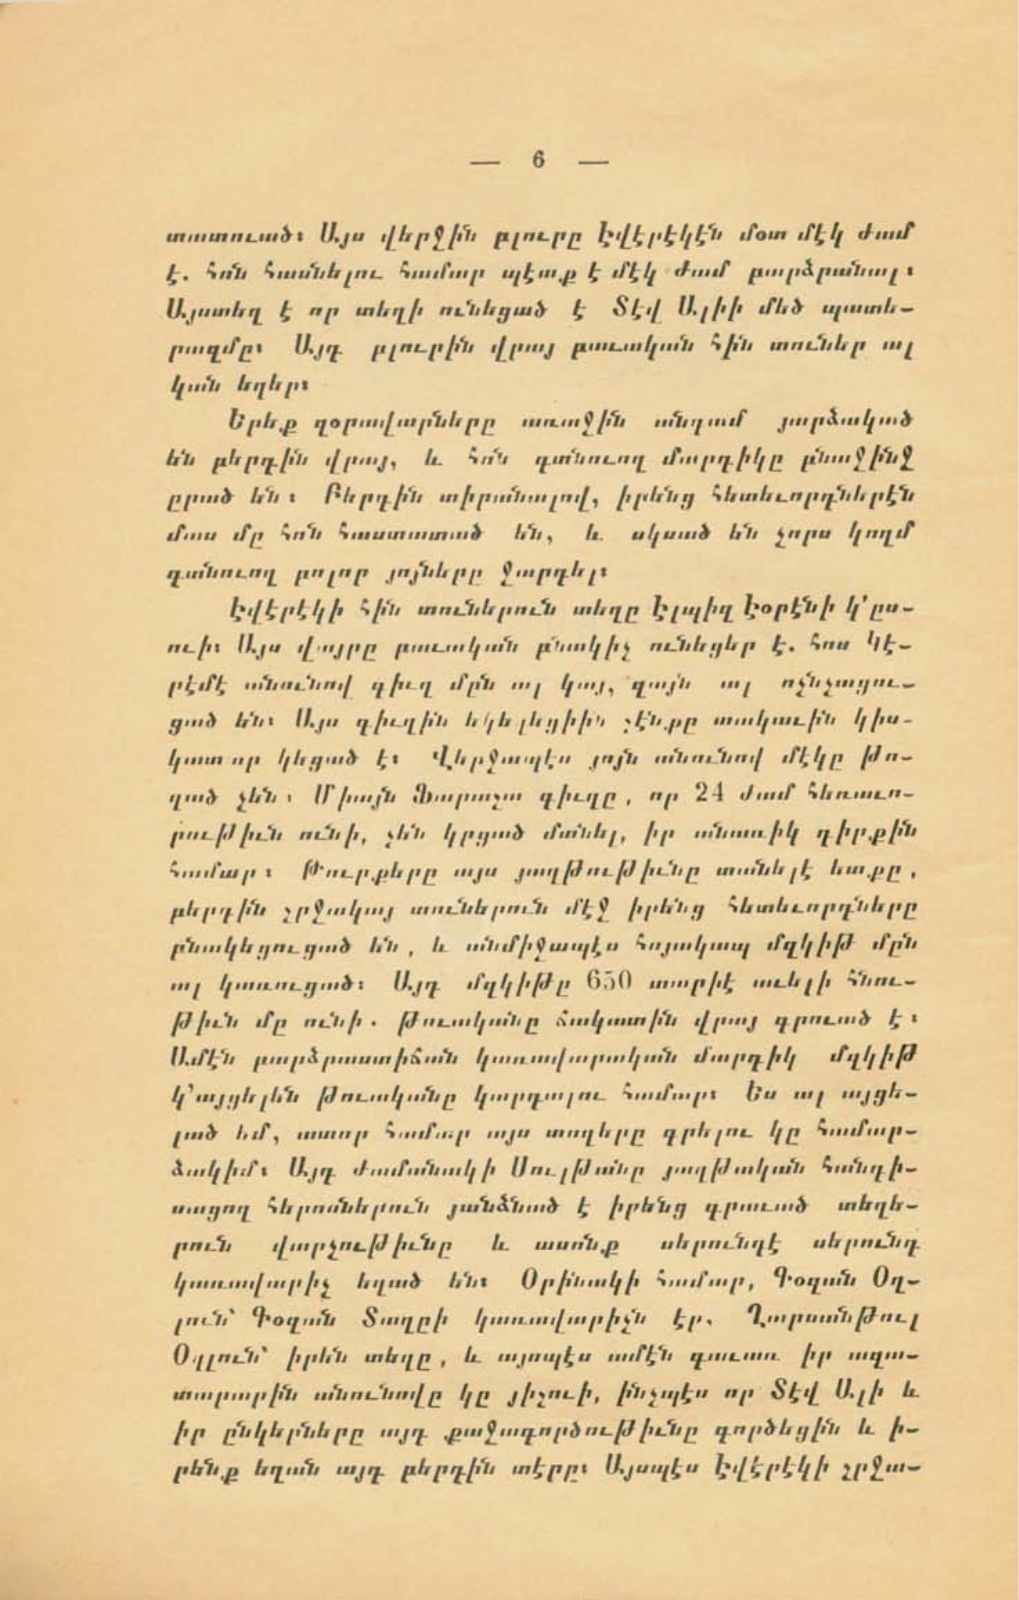 — 6 —
տատուած։ Այս վերջին բլուրը Էվէրէկէն մօտ մէկ ժամ
է. հոն հասնելու համար պէտք է մէկ ժամ բարձրանալ։
Այստեղ է որ տեղի ունեցած է Տէվ Ալիի մեծ պատե–
րազմը։ Այդ բլուրին վրայ բաւական հին տուներ ալ
կան եղեր։
Երեք զօրավարները առաջին անգամ յարձակած
են բերդին վրայ, և հոն գտնուող մարդիկը բնաջինջ
ըրած են։ Բերդին տիրանալով, իրենց հետեւորդներէն
մաս մը հոն հաստատած են, և սկսած են չորս կողմ
գտնուող բոլոր յոյները ջարդել։
Էվէրէկի հին տուներուն տեղը Էլպիզ Էօրէնի կ՚ըս–
ուի։ Այս վայրը բաւական բնակիչ ունեցեր է. հոս Կէ–
րէմէ անունով գիւղ մըն ալ կայ, զայն ալ ոչնչացու–
ցած են։ Այս գիւղին եկեղեցիին շէնքը տակաւին կիս–
կատար կեցած է։ Վերջապէս յոյն անունով մէկը թո–
ղած չեն։ Միայն Ֆարաշա գիւղը, որ 24 ժամ հեռաւո–
րութիւն ունի, չեն կրցած մտնել, իր անառիկ դիրքին
համար։ Թուրքերը այս յաղթութիւնը տանելէ ետքը,
բերդին շրջակայ տուներուն մէջ իրենց հետեւորդները
բնակեցուցած են, և անմիջապէս հոյակապ մզկիթ մըն
ալ կառուցած։ Այդ մզկիթը 650 տարիէ աւելի հնու–
թիւն մը ունի. թուականը ճակատին վրայ գրուած է։
Ամէն բարձրաստիճան կառավարական մարդիկ մզկիթ
կ՚այցելեն թուականը կարդալու համար։ Ես ալ այցե–
լած եմ, ատոր համար այս տողերը գրելու կը համար–
ձակիմ։ Այդ ժամանակի Սուլթանը յաղթական հանդի–
սացող հերոսներուն յանձնած է իրենց գրաւած տեղե–
րուն վարչութիւնը և ասոնք սերունդէ սերունդ
կառավարիչ եղած են։ Օրինակի համար, Գօզան Օղ–
լուն՝ Գօզան Տաղըի կառավարիչն էր, Ղարսանթուլ
Օղլուն՝ իրեն տեղը, և այսպէս ամէն գաւառ իր ազա–
տարարին անունովը կը յիշուի, ինչպէս որ Տէվ Ալի և
իր ընկերները այդ քաջագործութիւնը գործեցին և ի–
րենք եղան այդ բերդին տէրը։ Այսպէս Էվէրէկի շրջա–